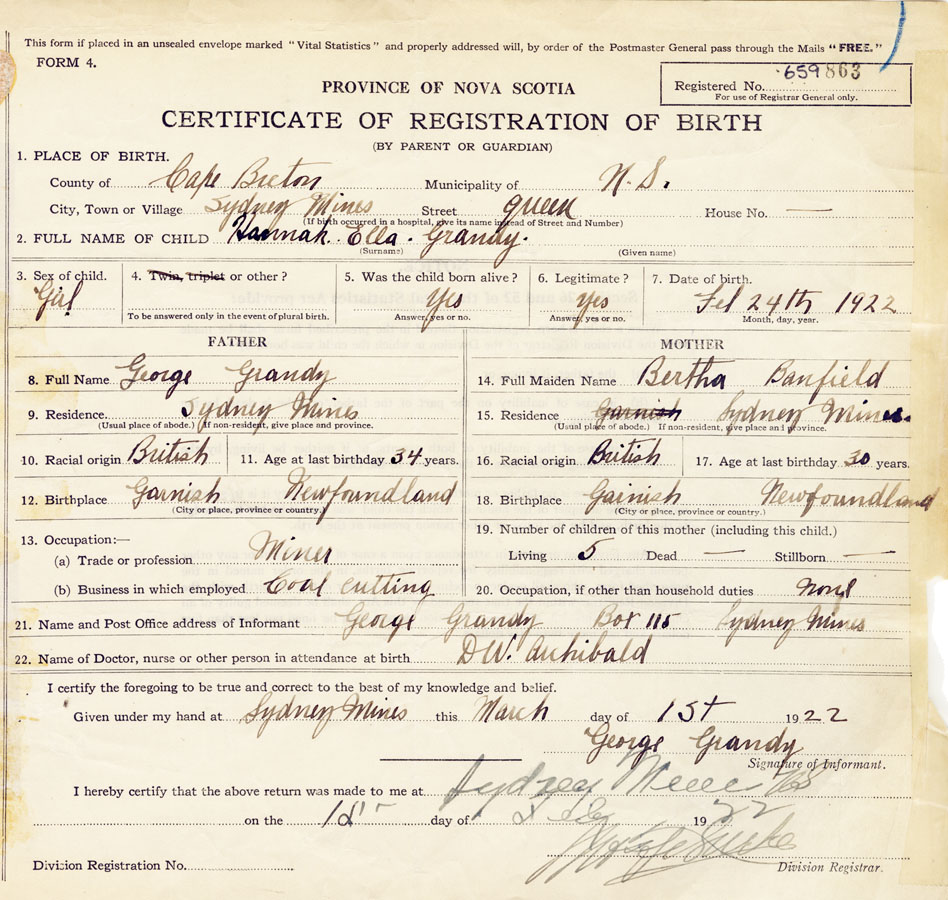 This form if placed in an unsealed envelope marked "Vital Statistics" and properly addressed will, by order of the Postmaster General pass through the Mails "FREE."
FORM 4.
Registered No. 659863
For use of Registrar General only.
PROVINCE OF NOVA SCOTIA
CERTIFICATE OF REGISTRATION OF BIRTH
(BY PARENT OR GUARDIAN)
1. PLACE OF BIRTH.
County of Cape Breton Municipality of N. S.
City, Town or Village Sydney Mines Street Queen House No. —
(If birth occurred in a hospital, give its name instead of Street and Number)
2. FULL NAME OF CHILD Hannah Ella Grandy.
(Surname) (Given name)
3. Sex of child. 4. Twin, triplet or other? 5. Was the child born alive? 6. Legitimate? 7. Date of birth.
Girl Yes Yes Feb 24th 1922
To be answered only in the event of plural birth. Answer, yes or no. Answer, yes or no. Month, day, year.
FATHER
8. Full Name George Grandy
9. Residence. Sydney Mines
(Usual place of abode.) If non-resident, give place and province.
10. Racial origin British 11. Age at last birthday 34 years.
12. Birthplace Garnish Newfoundland
(City or place, province or country.)
13. Occupation:—
(a) Trade or profession Miner
(b) Business in which employed Coal cutting
MOTHER
14. Full Maiden Name Bertha Banfield
15. Residence Garnish Sydney Mines.
(Usual place of abode.) If non-resident, give place and province.
16. Racial origin British 17. Age at last birthday 30 years.
18. Birthplace Garnish Newfoundland
(City or place, province or country.)
19. Number of children of this mother (including this child.)
Living 5 Dead — Stillborn —
20. Occupation, if other than household duties None
21. Name and Post Office address of Informant George Grandy Box 115 Sydney Mines
22. Name of Doctor, nurse or other person in attendance at birth DW. Archibald
I certify the foregoing to be true and correct to the best of my knowledge and belief.
Given under my hand at Sydney Mines this March day of 1st 1922
George Grandy
Signature of Informant.
I hereby certify that the above return was made to me at Sydney Mines
on the day of 1922
Division Registration No.
Division Registrar.